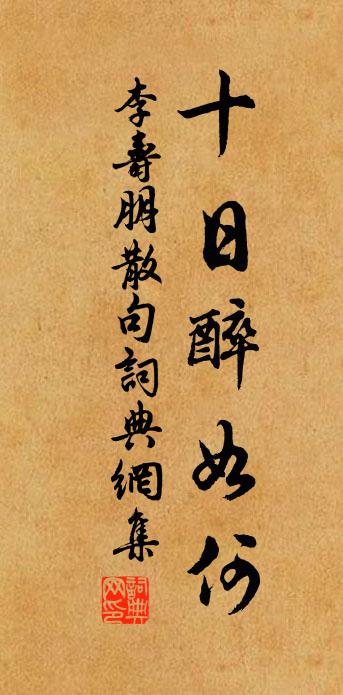 十日醉如何
李壽朋散句詞典網集
詞典網印